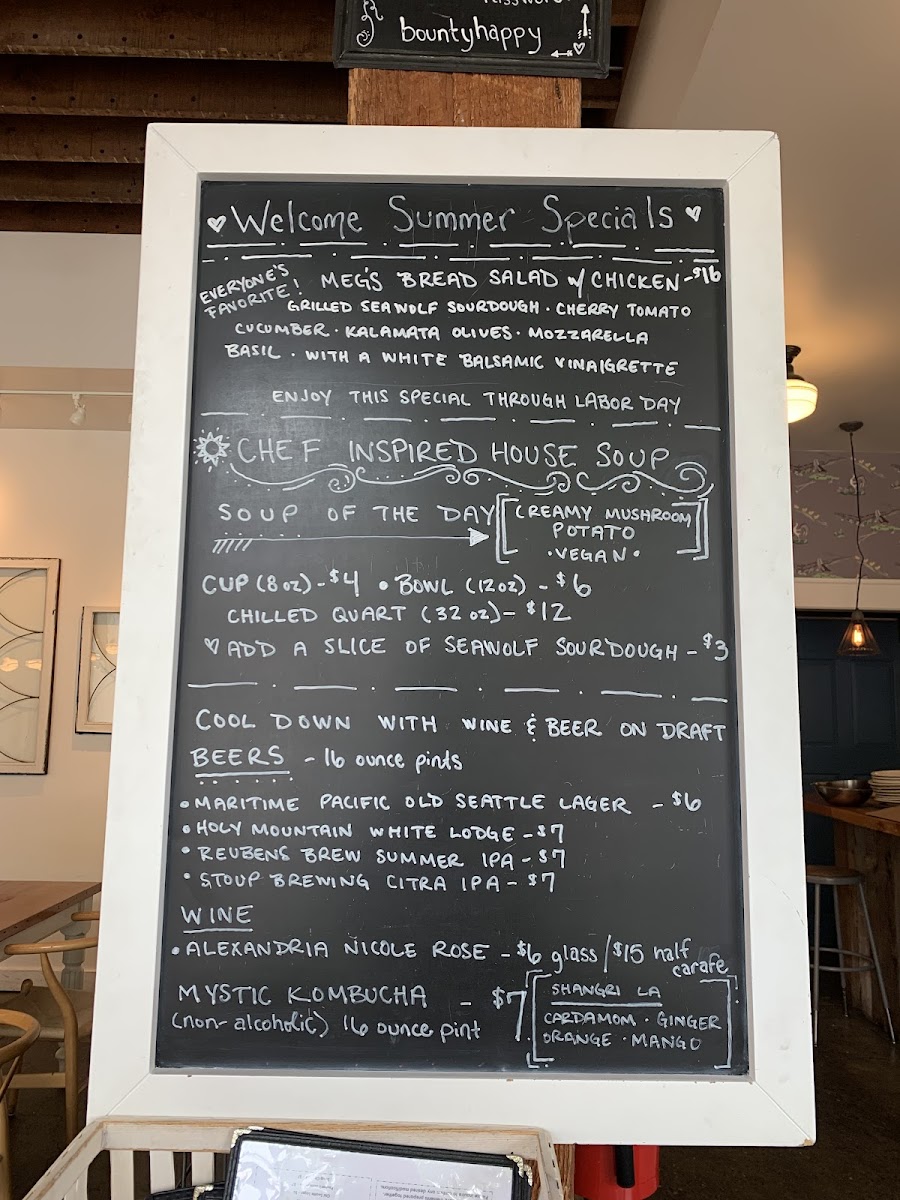 bountyhappy
Welcome Summer Specials
EVERYONE'S
FAVORITE!
MEG'S BREAD SALAD w/ CHICKEN - $16
GRILLED SEAWOLF SOURDOUGH · CHERRY TOMATO
CUCUMBER · KALAMATA OLIVES · MOZZARELLA
BASIL · WITH A WHITE BALSAMIC VINAIGRETTE
ENJOY THIS SPECIAL THROUGH LABOR DAY
CHEF INSPIRED HOUSE SOUP
SOUP OF THE DAY
CREAMY MUSHROOM
POTATO
·VEGAN·
CUP (8 oz) - $4 • BOWL (12 oz) - $6
CHILLED QUART (32 oz) - $12
ADD A SLICE OF SEAWOLF SOURDOUGH - $3
COOL DOWN WITH WINE & BEER ON DRAFT
BEERS - 16 ounce pints
• MARITIME PACIFIC OLD SEATTLE LAGER - $6
• HOLY MOUNTAIN WHITE LODGE - $7
• REUBENS BREW SUMMER IPA - $7
• STOUP BREWING CITRA IPA - $7
WINE
• ALEXANDRIA NICOLE ROSE - $6 glass / $15 half
carafe
MYSTIC KOMBUCHA - $7
(non-alcoholic) 16 ounce pint
SHANGRI LA
CARDAMOM · GINGER
ORANGE · MANGO